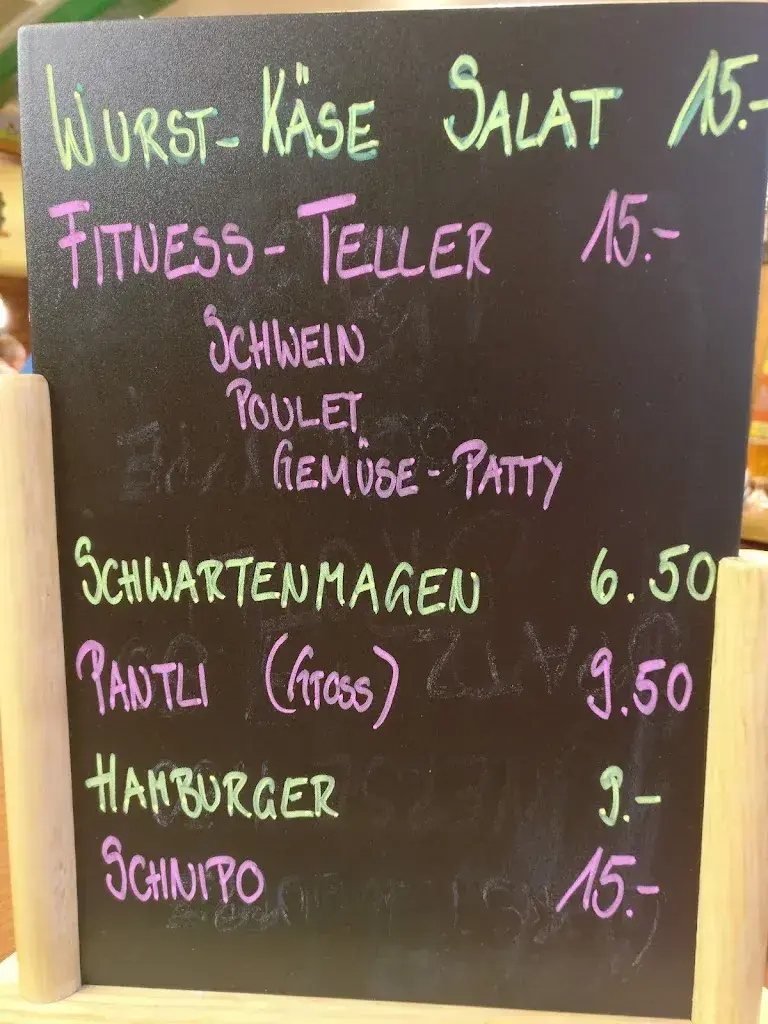 WURST-KÄSE SALAT 15.-
FITNESS-TELLER 15.-
SCHWEIN
POULET
GEMÜSE-PATTY
SCHWARTENMAGEN 6.50
PANTLI (GROSS) 9.50
HAMBURGER 9.-
SCHNIPO 15.-